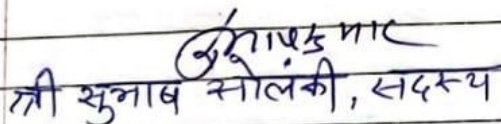 श्री सुभाष सोलंकी, सदस्य